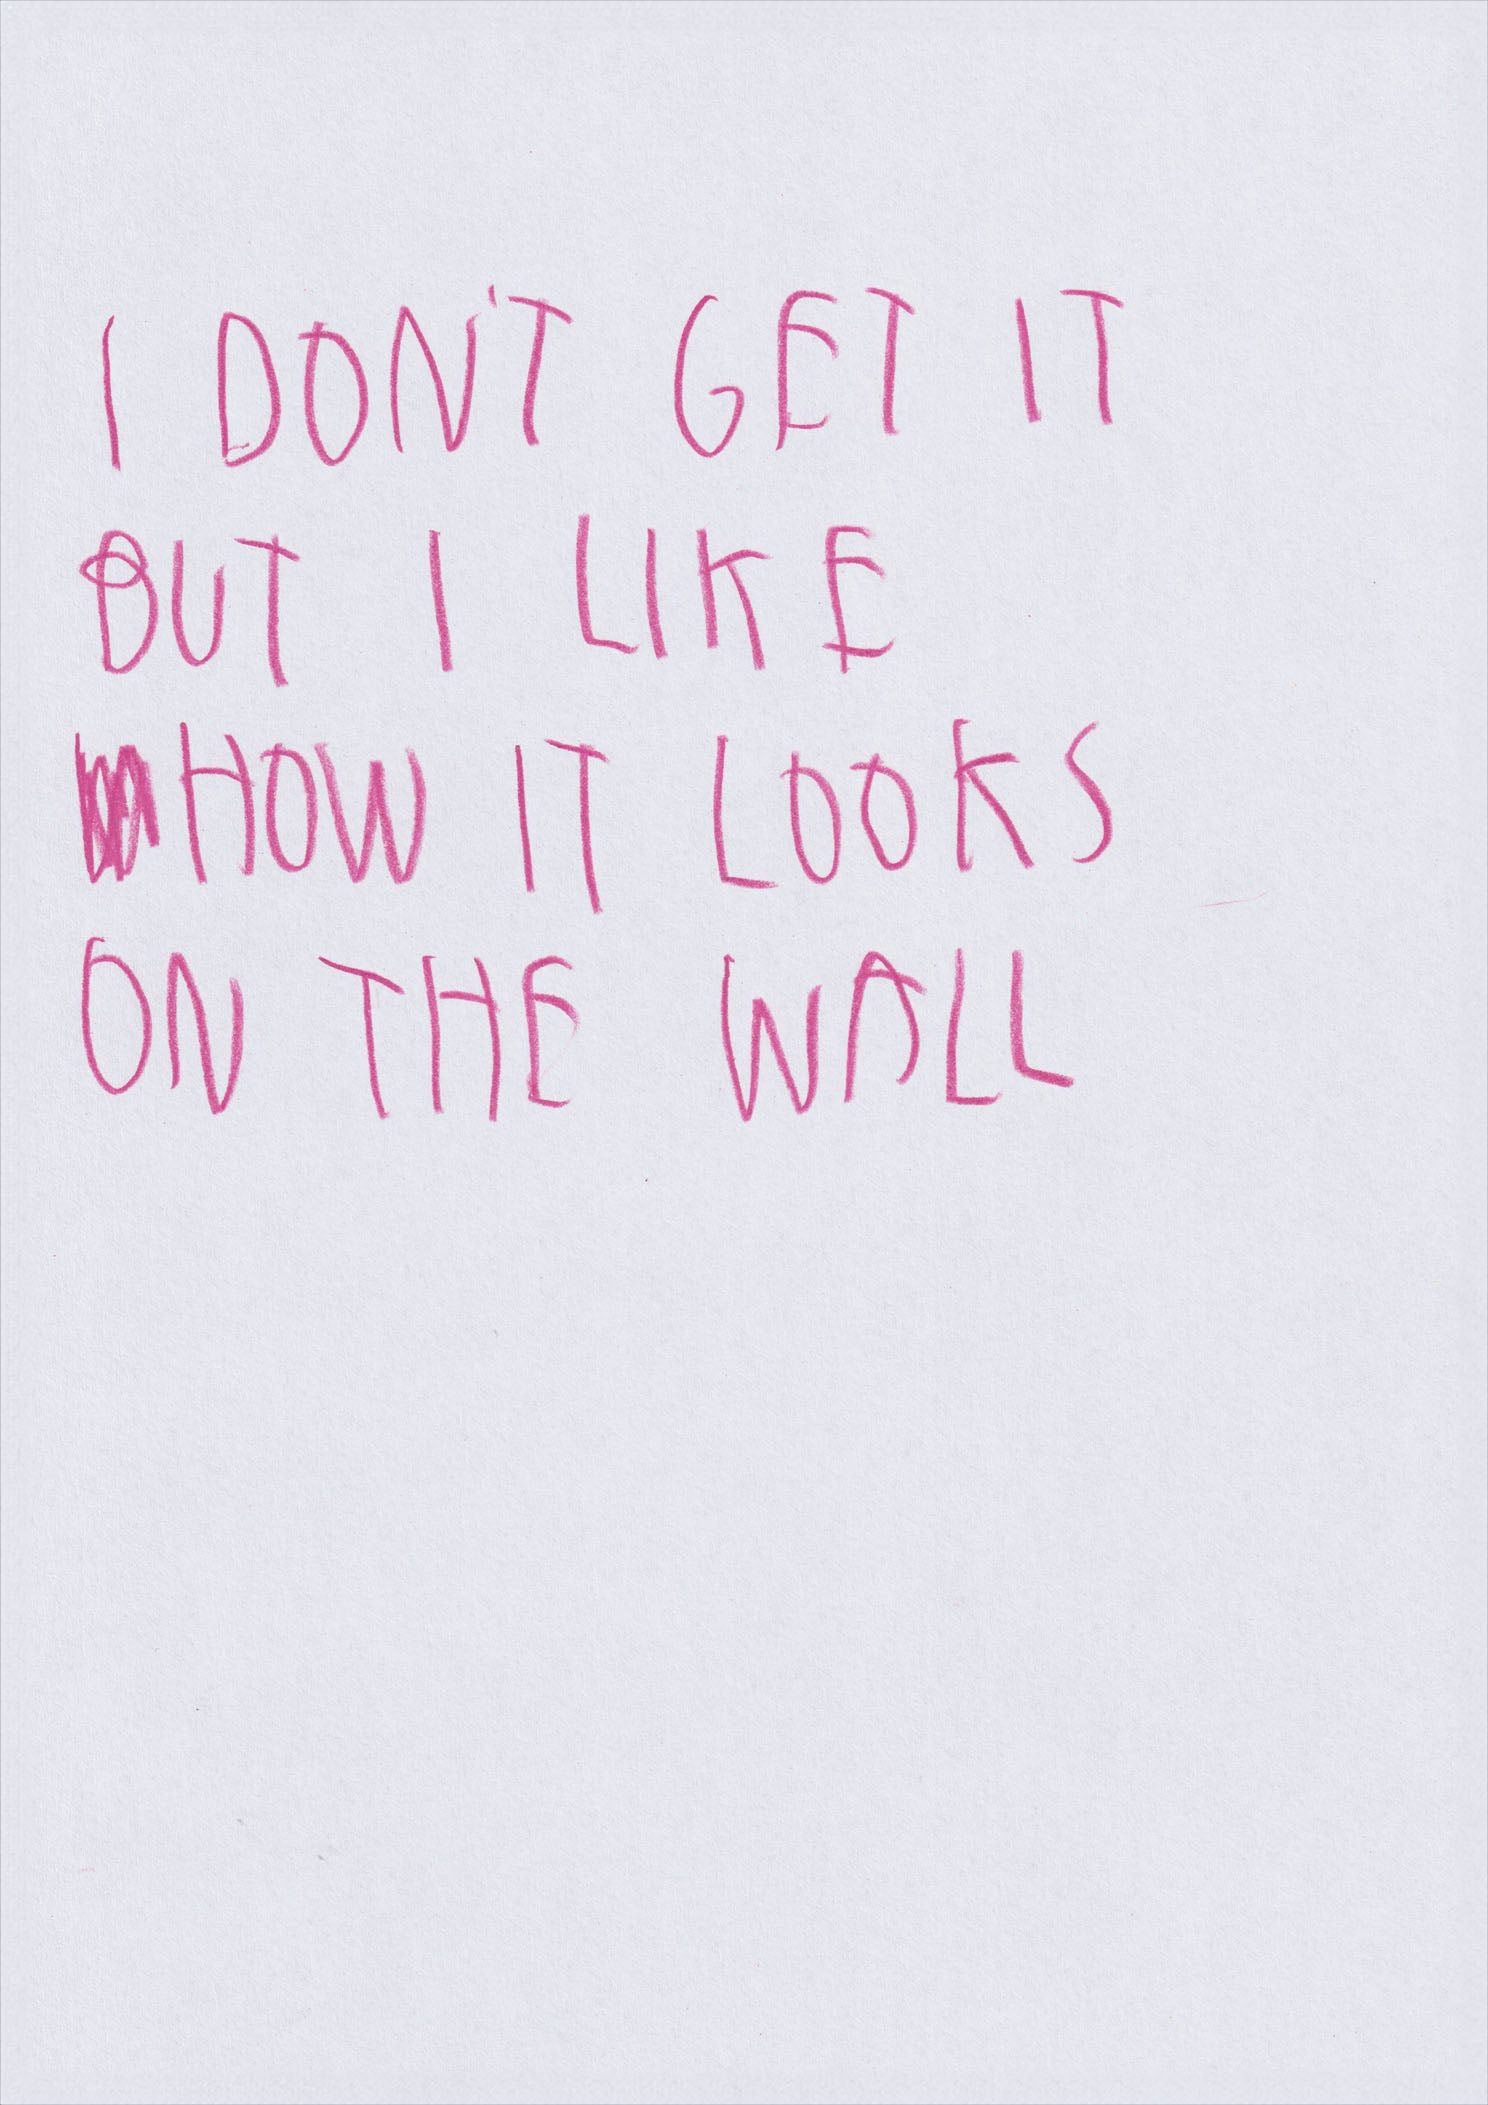 I DON'T GET IT
BUT I LIKE
HOW IT LOOKS
ON THE WALL